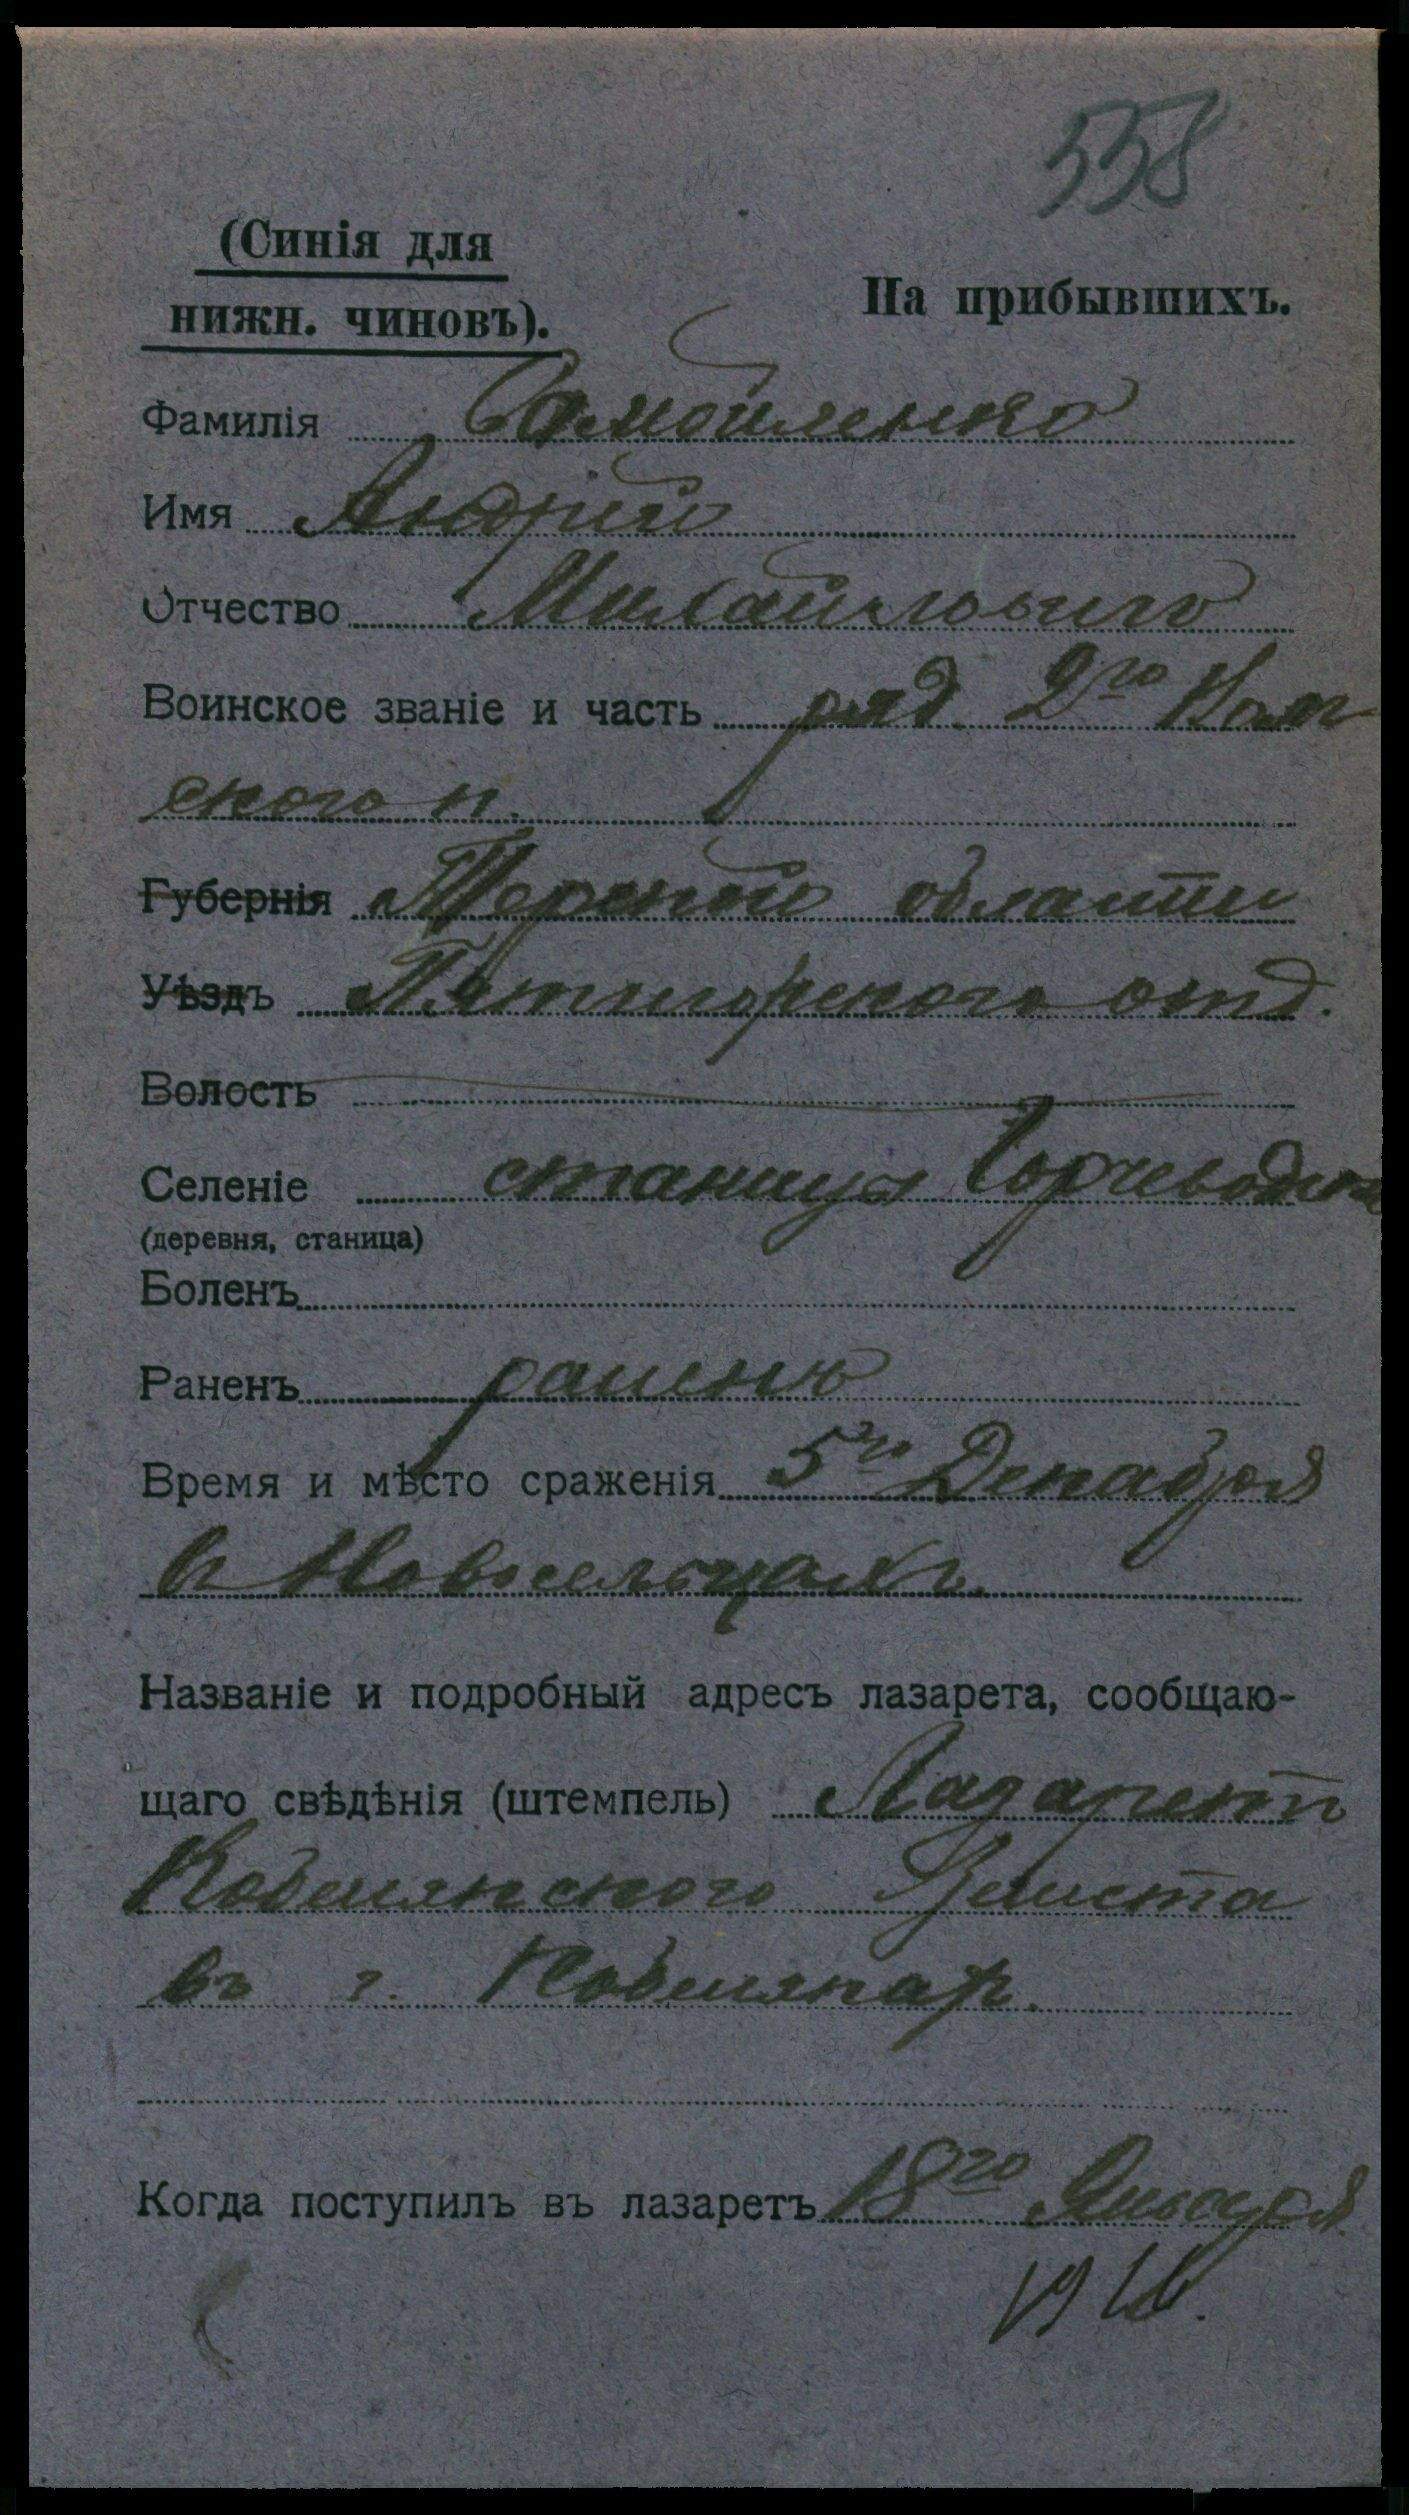 558
(Синія для
нижн. чиновъ).
На прибывшихъ.
Фамилія Самойленко
Имя Андрей
Отчество Михайловичъ
Воинское званіе и часть ряд. 2го Волг
ского п.
Губернія Терской области
Уѣздъ Пятигорского отд.
Волость
Селеніе станица Горячеводск
(деревня, станица)
Боленъ
Раненъ раненъ
Время и мѣсто сраженія 5го Декабря
в Новосельцахъ.
Названіе и подробный адресъ лазарета, сообщаю-
щаго свѣдѣнія (штемпель) Лазаретъ
Кобелянского Земства
въ г. Кобеляках.
Когда поступилъ въ лазаретъ 18го Января
1916.